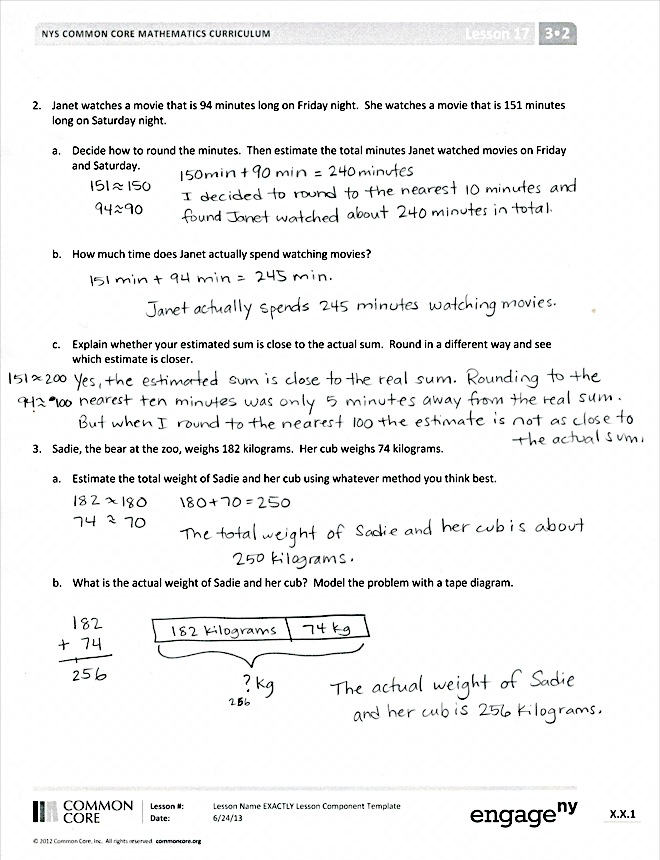 NYS COMMON CORE MATHEMATICS CURRICULUM Lesson 17 3•2
2. Janet watches a movie that is 94 minutes long on Friday night. She watches a movie that is 151 minutes
long on Saturday night.
a. Decide how to round the minutes. Then estimate the total minutes Janet watched movies on Friday
and Saturday.
150min + 90 min = 240 minutes
151≈150
I decided to round to the nearest 10 minutes and
94≈90
found Janet watched about 240 minutes in total.
b. How much time does Janet actually spend watching movies?
151 min + 94 min = 245 min.
Janet actually spends 245 minutes watching movies.
c. Explain whether your estimated sum is close to the actual sum. Round in a different way and see
which estimate is closer.
151≈200 Yes, the estimated sum is close to the real sum. Rounding to the
94≈100 nearest ten minutes was only 5 minutes away from the real sum.
But when I round to the nearest 100 the estimate is not as close to
the actual sum.
3. Sadie, the bear at the zoo, weighs 182 kilograms. Her cub weighs 74 kilograms.
a. Estimate the total weight of Sadie and her cub using whatever method you think best.
182≈180 180+70=250
74≈70
The total weight of Sadie and her cub is about
250 kilograms.
b. What is the actual weight of Sadie and her cub? Model the problem with a tape diagram.
182
+ 74
256
182 kilograms 74 kg
? kg
256
The actual weight of Sadie
and her cub is 256 kilograms.
COMMON CORE
Lesson #: Lesson Name EXACTLY Lesson Component Template
Date: 6/24/13
engage ny
X.X.1
© 2012 Common Core, Inc. All rights reserved. commoncore.org